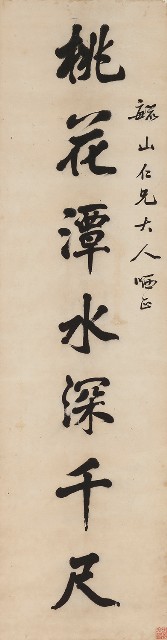 山仁兄大人哂正
桃花潭水深千尺